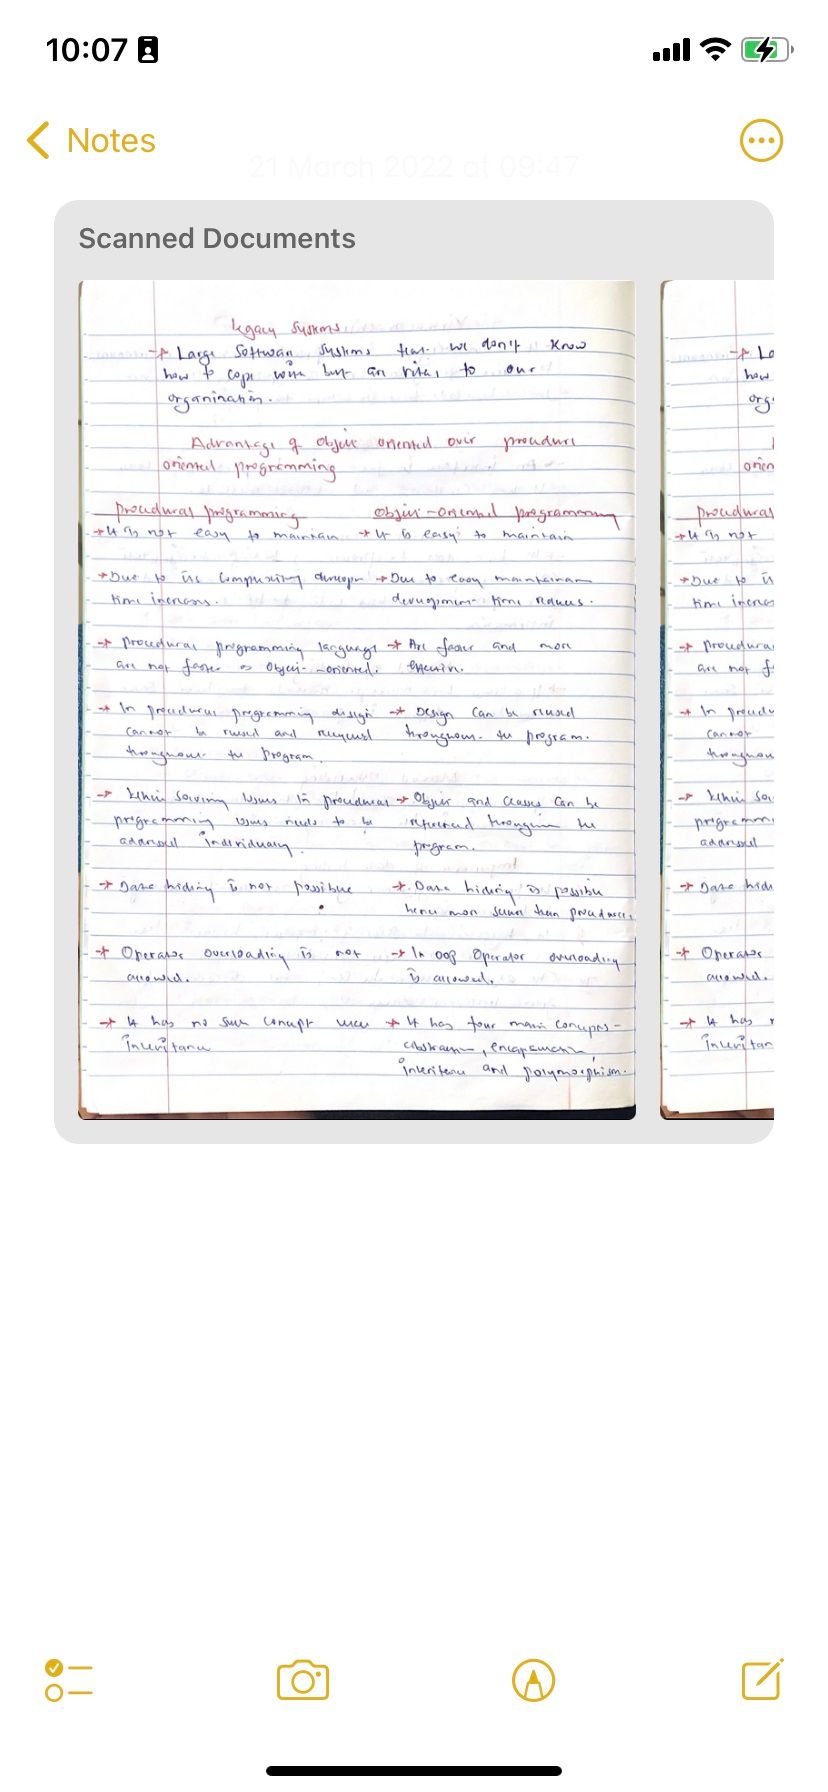 10:07
Notes
21 March 2022 at 09:47
Scanned Documents
Legacy Systems
Large Software Systems that we don't know
how to cope with but are vital to our
organination.
Advantage of object oriented over procedure
oriented programming
procedural programming
object-oriented programming
It is not easy to maintain
It is easy to maintain
Due to its complexity
time increases.
Due to easy maintainan
development time reduces.
procedural programming language
are not faster as object-oriented.
Are faster and more
In procedural programming design
cannot be reused and
throughout the program.
Design can be reused
throughout the program.
When solving issues in procedural
programming issues needs to be
addressed individually.
Object and classes can be
referenced the
program.
Data hiding is not possible
Data hiding is possible
hence more than
Operator overloading is not
allowed.
In oop Operator overloading
is allowed.
It has no such concept
inheritance
It has four main concepts -
abstraction, encapsulation,
inheritance and polymorphism.
how
procedural
It is not
Due to
time increa
procedura
are not f
In
cannot
When
Operator
allowed.
It has